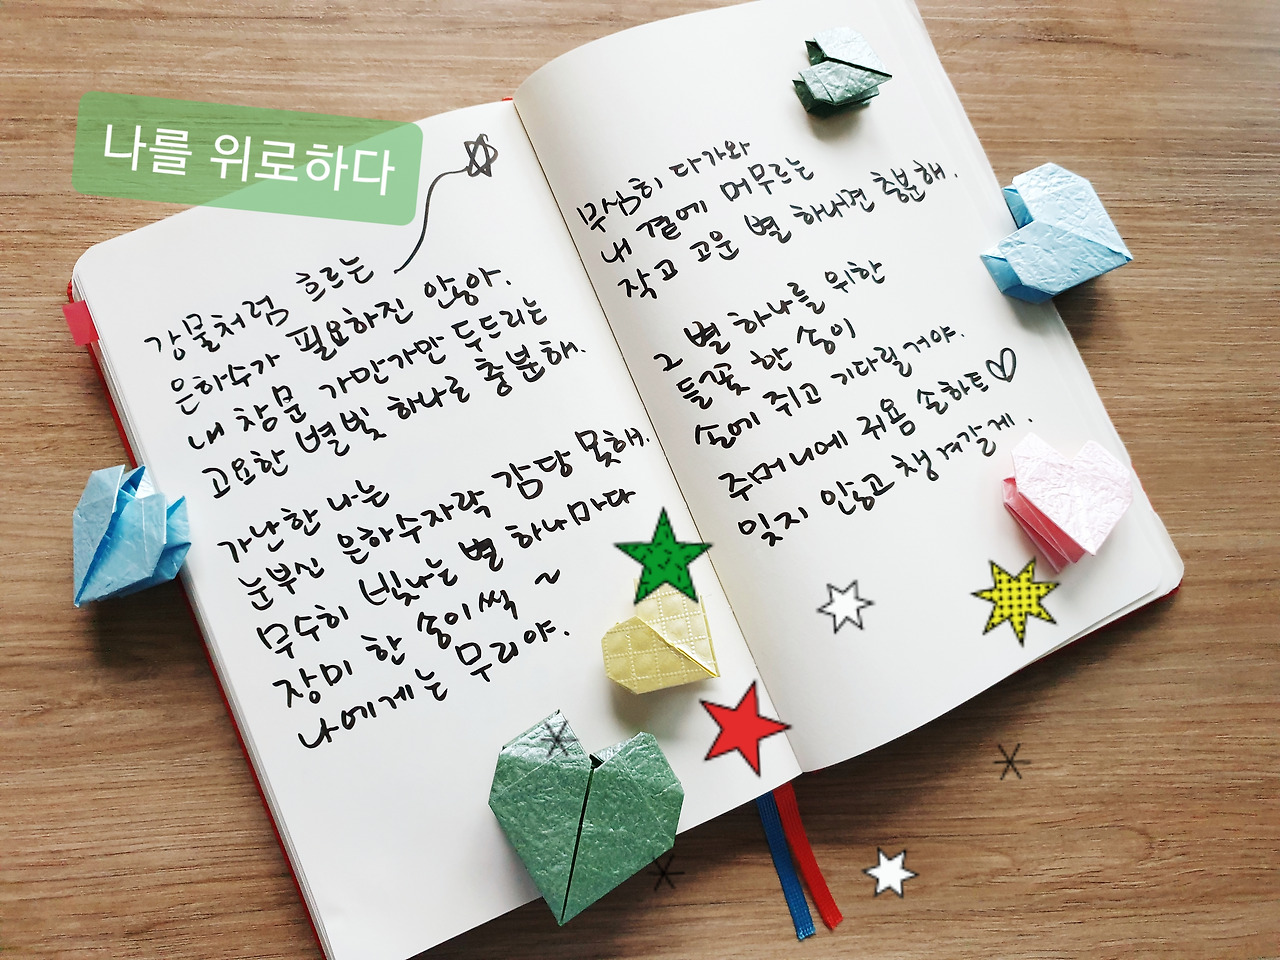 나를 위로하다
강물처럼 흐르는
은하수가 필요하진 않아.
내 창문 가만가만 두드리는
고요한 별빛 하나로 충분해.
가난한 나는
눈부신 은하수자락 감당 못해.
무수히 빛나는 별 하나마다
장미 한 송이씩 ~
나에게는 무리야.
무심히 다가와
내 곁에 머무르는
작고 고운 별 하나면 충분해.
그 별 하나를 위한
들꽃 한 송이
손에 쥐고 기다릴 거야.
주머니에 귀욤 손하트♡
잊지 않고 챙겨갈게.